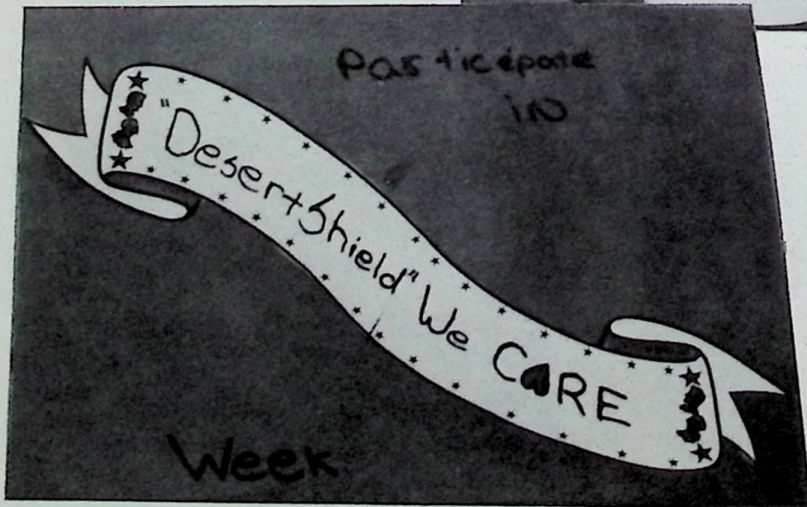 Participate
in
"Desert Shield" We CARE
Week